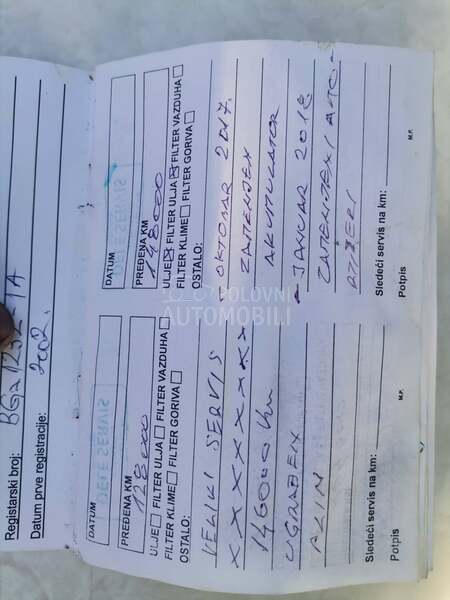 Registarski broj:
Datum prve registracije: 2002.
DATUM
DELE SERVIS
PREĐENA KM
128000
ULJE FILTER ULJA FILTER VAZDUHA
FILTER KLIME FILTER GORIVA
OSTALO:
VELIKI SERVIS
XXXXXXXX
146000 Km
UGRAĐEN
PLIN
Sledeći servis na km:
Potpis
M.P.
DATUM
DELE SERVIS
PREĐENA KM
148000
ULJE FILTER ULJA FILTER VAZDUHA
FILTER KLIME FILTER GORIVA
OSTALO:
- OKTOBAR 2017.
ZAMENJEN
AKUMULATOR
- JANUAR 2018
ZAMENJENI AMO-
RTIZERI
Sledeći servis na km:
Potpis
M.P.
POLOVNI
AUTOMOBILI